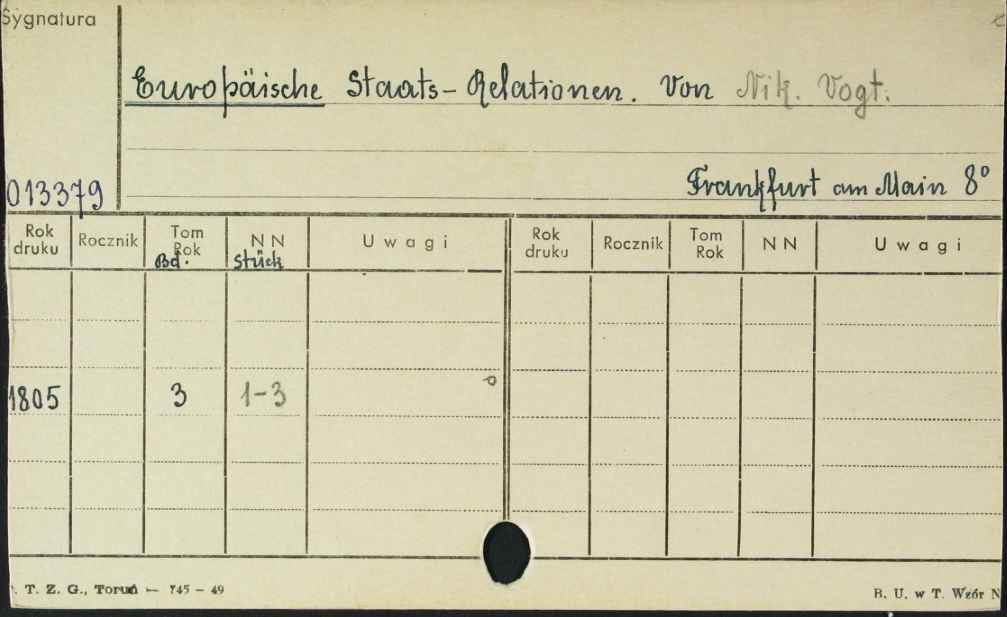 Sygnatura
Europäische Staats-Relationen. Von Nik. Vogt.
013379
Frankfurt am Main 8°
Rok druku Rocznik Tom Rok Bd. NN Stück Uwagi Rok druku Rocznik Tom Rok NN Uwagi
1805 3 1-3
T. Z. G., Toruń — 745 - 49
B. U. w T. Wzór N